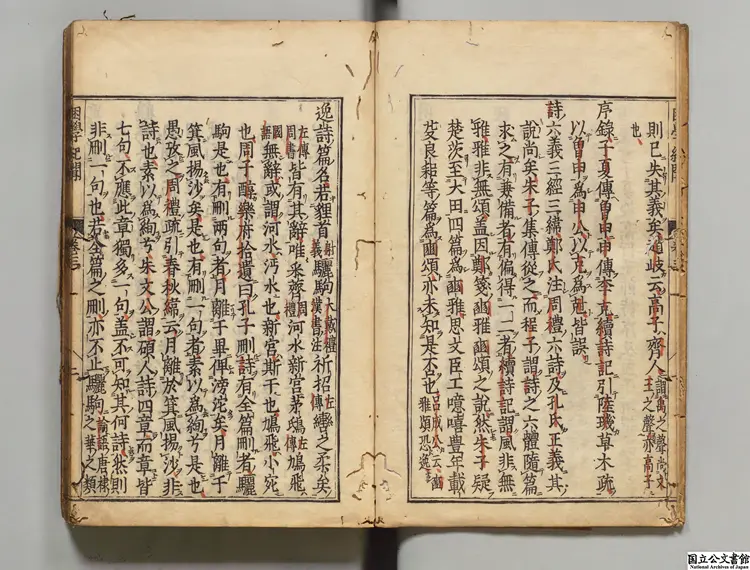 則已失其義矣趙岐云高子齊人謂禹之聲尚文王之聲亦高子
也
序錄子夏傳曾申申傳李克讀詩記引陸璣草木疏
以曾申為申公以克為尅皆誤
詩六義三經三緯鄭氏注周禮六詩及孔氏正義其
說尚矣朱子集傳從之而程子謂詩之六體隨篇
求之有兼備者有偏得一二者讀詩記謂風非無
雅雅非無頌蓋因鄭箋豳雅豳頌之說然朱子疑
楚茨至大田四篇為豳雅思文臣工噫嘻豐年載
芟良耜等篇為豳頌亦未知是否也呂成公云豳雅頌恐逸
逸詩篇名若貍首射義驪駒大戴禮漢書注祈招左傳轡之柔矣
左傳周書皆有其辭唯采薺周禮河水新宮茅鴟左傳鳩飛
國語無辭或謂河水沔水也新宮斯干也鳩飛小宛
也周子醇樂府拾遺曰孔子刪詩有全篇刪者驪
駒是也有刪兩句者月離于畢俾滂沱矣月離于
箕風揚沙矣是也有刪一句者素以為絢兮是也
愚攷之周禮疏引春秋緯云月離於箕風揚沙非
詩也素以為絢兮朱文公謂碩人詩四章而章皆
七句不應此章獨多一句蓋不可知其何詩然則
非刪一句也若全篇之刪亦不止驪駒論語唐棣之華之類
困學紀聞 卷之三
国立公文書館
National Archives of Japan